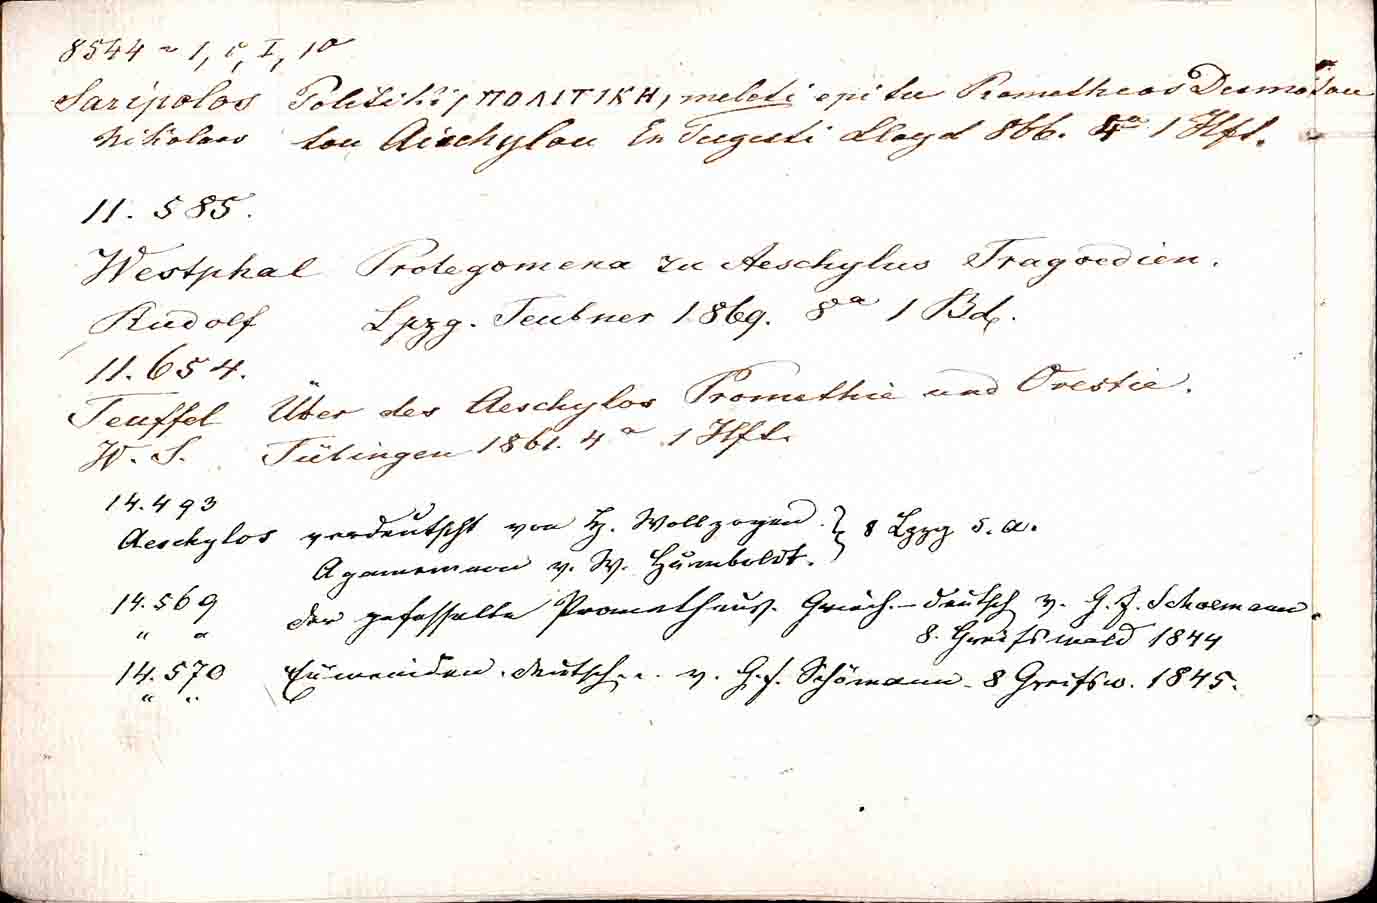 8544 ~ 1, c, I, 1a
Saripolos Politiki, ΠΟΛΙΤΙΚΗ, meleti epi tu Prometheos Desmotou
Nikolaos tou Aischylou En Tergesti Lloyd 866. 4° 1 Hft.
11. 585.
Westphal Prolegomena zu Aeschylus Tragoedien.
Rudolf Lpzg. Teubner 1869. 8° 1 Bd.
11. 654.
Teuffel Über des Aeschylos Promethie und Orestie.
W. S. Tübingen 1861. 4° 1 Hft.
14. 493
Aeschylos verdeutscht von H. Wollzogen. } 8 Lpzg s. a.
Agamemnon v. W. Humboldt.
14. 569 der gefesselte Prometheus. Griech.-deutsch v. G. F. Schoemann.
" " 8. Greifswald 1844
14. 570 Eumeniden. deutsch.. v. G. f. Schömann. 8 Greifsw. 1845.
" "